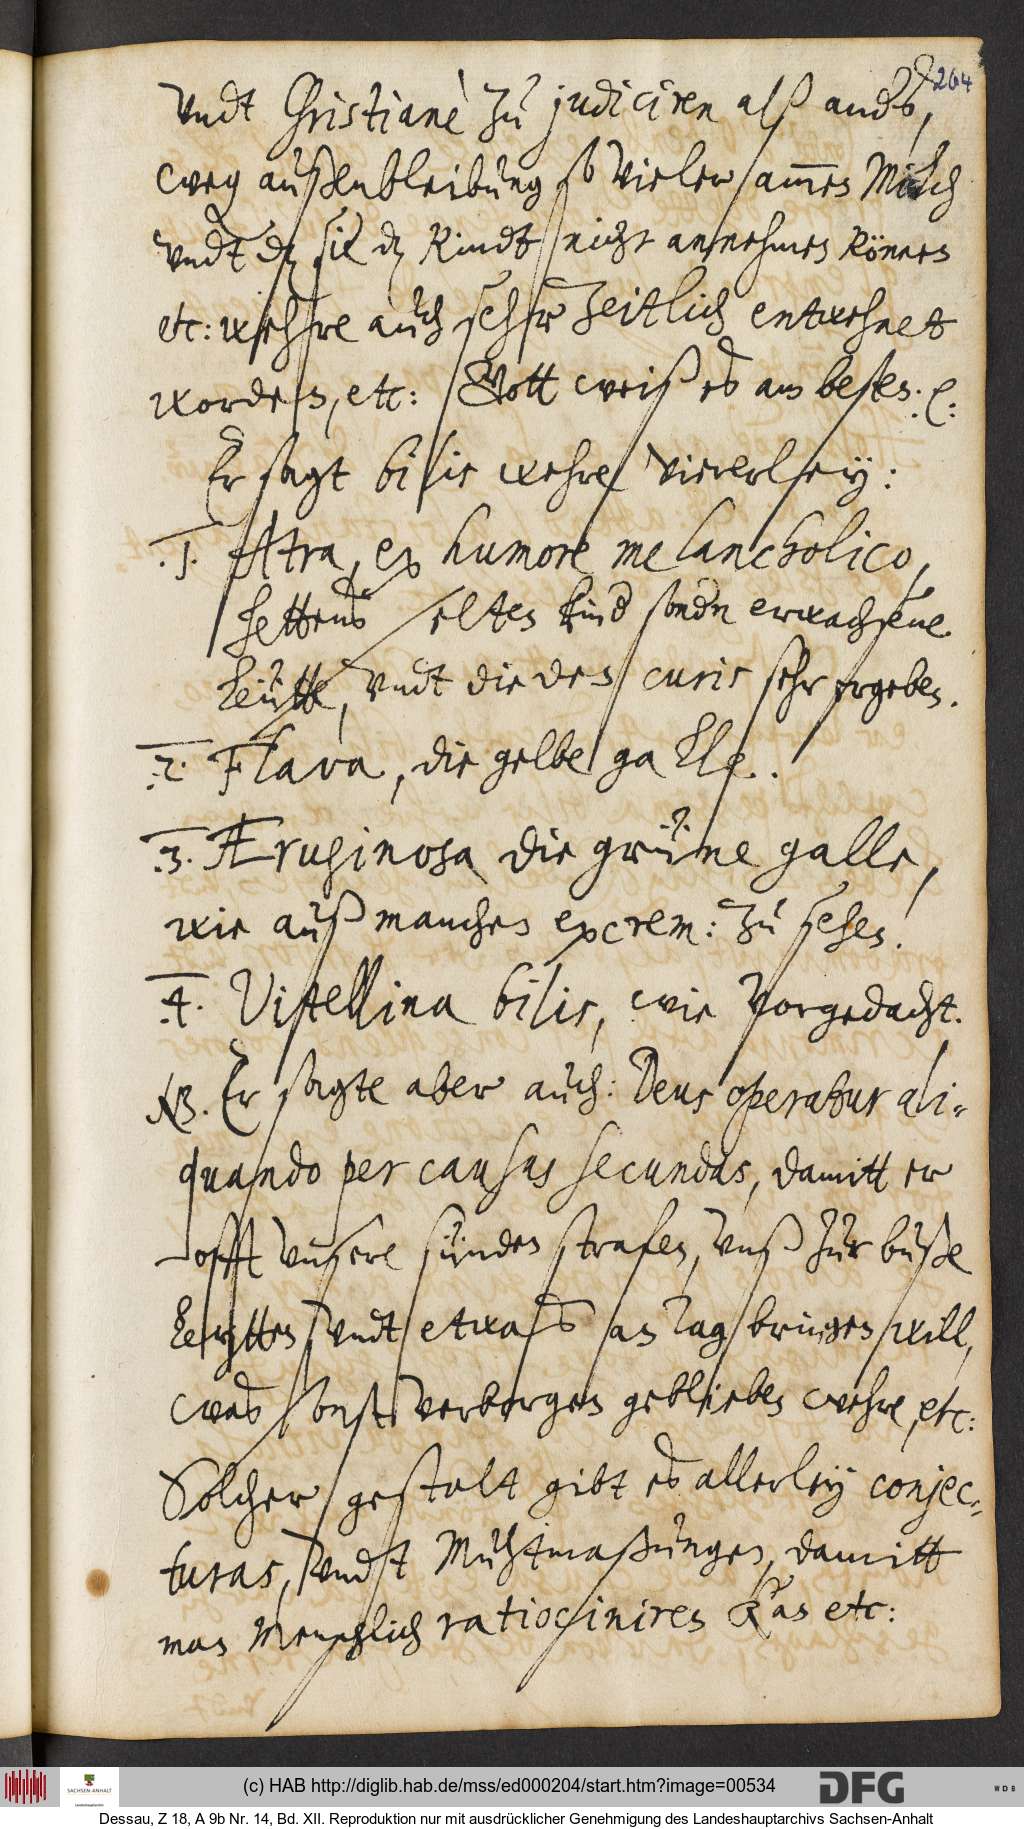 264
Undt Christiané zu judiciren alß anders,
weg außenbleibung so vieler ammen Milch
undt dz sie dz Kindt nicht annehmen können
etc: wehre auch sehr zeitlich entwehnet
worden, etc: Gott weiß es am besten. e:
Er sagt bilis wehre viererley:
.1. Atra, ex humore melancholico,
hettens selten kind sondn erwachsene
Leütte, undt die den curis sehr ergeben.
.2. Flava, die gelbe galle.
.3. Æruginosa, die grüne galle,
wie auß manchen excrem: zu sehen.
.4. Vitellina bilis, wie vorgedacht.
NB. Er sagte aber auch: Deus operatur ali-
quando per causas secundas, damitt er
offt unsere sünden strafen, unß zur buße
leytten undt etwaß an Tag bringen will,
was sonst verborgen geblieben wehre, etc:
Solcher gestalt gibt es allerley conjec-
turas, undt Muhtmaßungen, damitt
man Menschlich ratiociniren kan etc:
(c) HAB http://diglib.hab.de/mss/ed000204/start.htm?image=00534
SACHSEN-ANHALT
DFG
WDB
Dessau, Z 18, A 9b Nr. 14, Bd. XII. Reproduktion nur mit ausdrücklicher Genehmigung des Landeshauptarchivs Sachsen-Anhalt